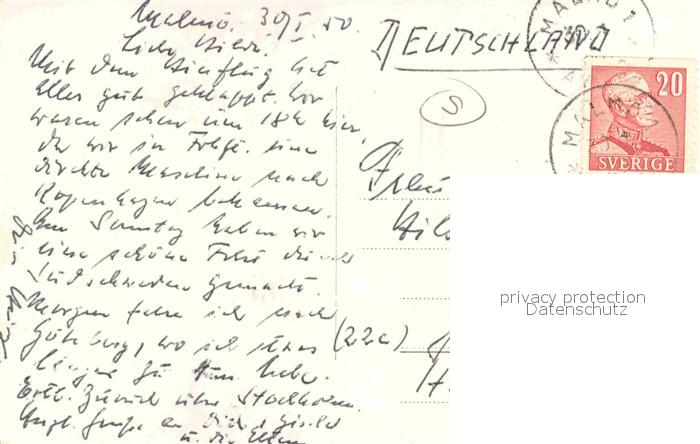 Malmö. 30/I. 50.
Liebe Hilde!
Mit dem Hinflug hat
alles gut geklappt. Wir
waren schon um 18h hier,
da wir in Frkf. eine
direkte Maschine nach
Kopenhagen bekamen.
Am Sonntag haben wir
eine schöne Fahrt durch
Südschweden gemacht.
Morgen fahre ich nach
Göteborg, wo ich etwas
länger zu tun habe.
Evtl. zurück über Stockholm.
Herzl. Grüße an Dich, Gisela
u. die Eltern
Dein
DEUTSCHLAND
S
Hil
(22a)
MALMÖ 1
MALMÖ
20
SVERIGE
privacy protection
Datenschutz